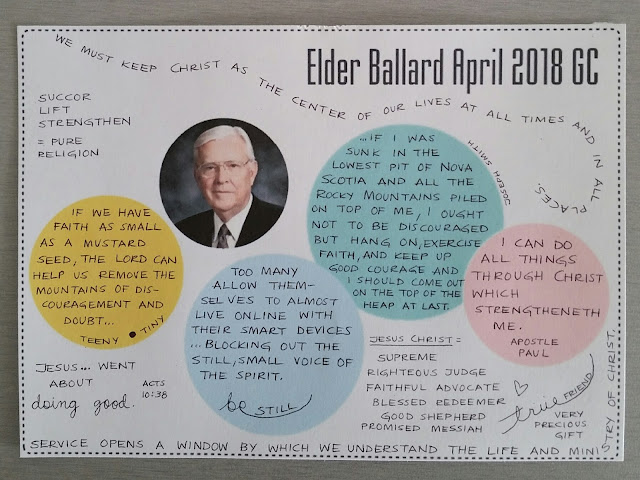 WE MUST KEEP CHRIST AS THE CENTER OF OUR LIVES AT ALL TIMES AND IN ALL PLACES
Elder Ballard April 2018 GC
SUCCOR
LIFT
STRENGTHEN
= PURE
RELIGION
...IF I WAS
SUNK IN THE
LOWEST PIT OF NOVA
SCOTIA AND ALL THE
ROCKY MOUNTAINS PILED
ON TOP OF ME, I OUGHT
NOT TO BE DISCOURAGED
BUT HANG ON, EXERCISE
FAITH, AND KEEP UP
GOOD COURAGE AND
I SHOULD COME OUT
ON THE TOP OF THE
HEAP AT LAST.
JOSEPH SMITH
IF WE HAVE
FAITH AS SMALL
AS A MUSTARD
SEED, THE LORD CAN
HELP US REMOVE THE
MOUNTAINS OF DIS-
COURAGEMENT AND
DOUBT...
TEENY TINY
TOO MANY
ALLOW THEM-
SELVES TO ALMOST
LIVE ONLINE WITH
THEIR SMART DEVICES
...BLOCKING OUT THE
STILL, SMALL VOICE OF
THE SPIRIT.
be STILL
I CAN DO
ALL THINGS
THROUGH CHRIST
WHICH
STRENGTHENETH
ME.
APOSTLE
PAUL
JESUS... WENT
ABOUT
doing good.
ACTS
10:38
JESUS CHRIST =
SUPREME
RIGHTEOUS JUDGE
FAITHFUL ADVOCATE
BLESSED REDEEMER
GOOD SHEPHERD
PROMISED MESSIAH
true FRIEND
VERY
PRECIOUS
GIFT
SERVICE OPENS A WINDOW BY WHICH WE UNDERSTAND THE LIFE AND MINISTRY OF CHRIST.